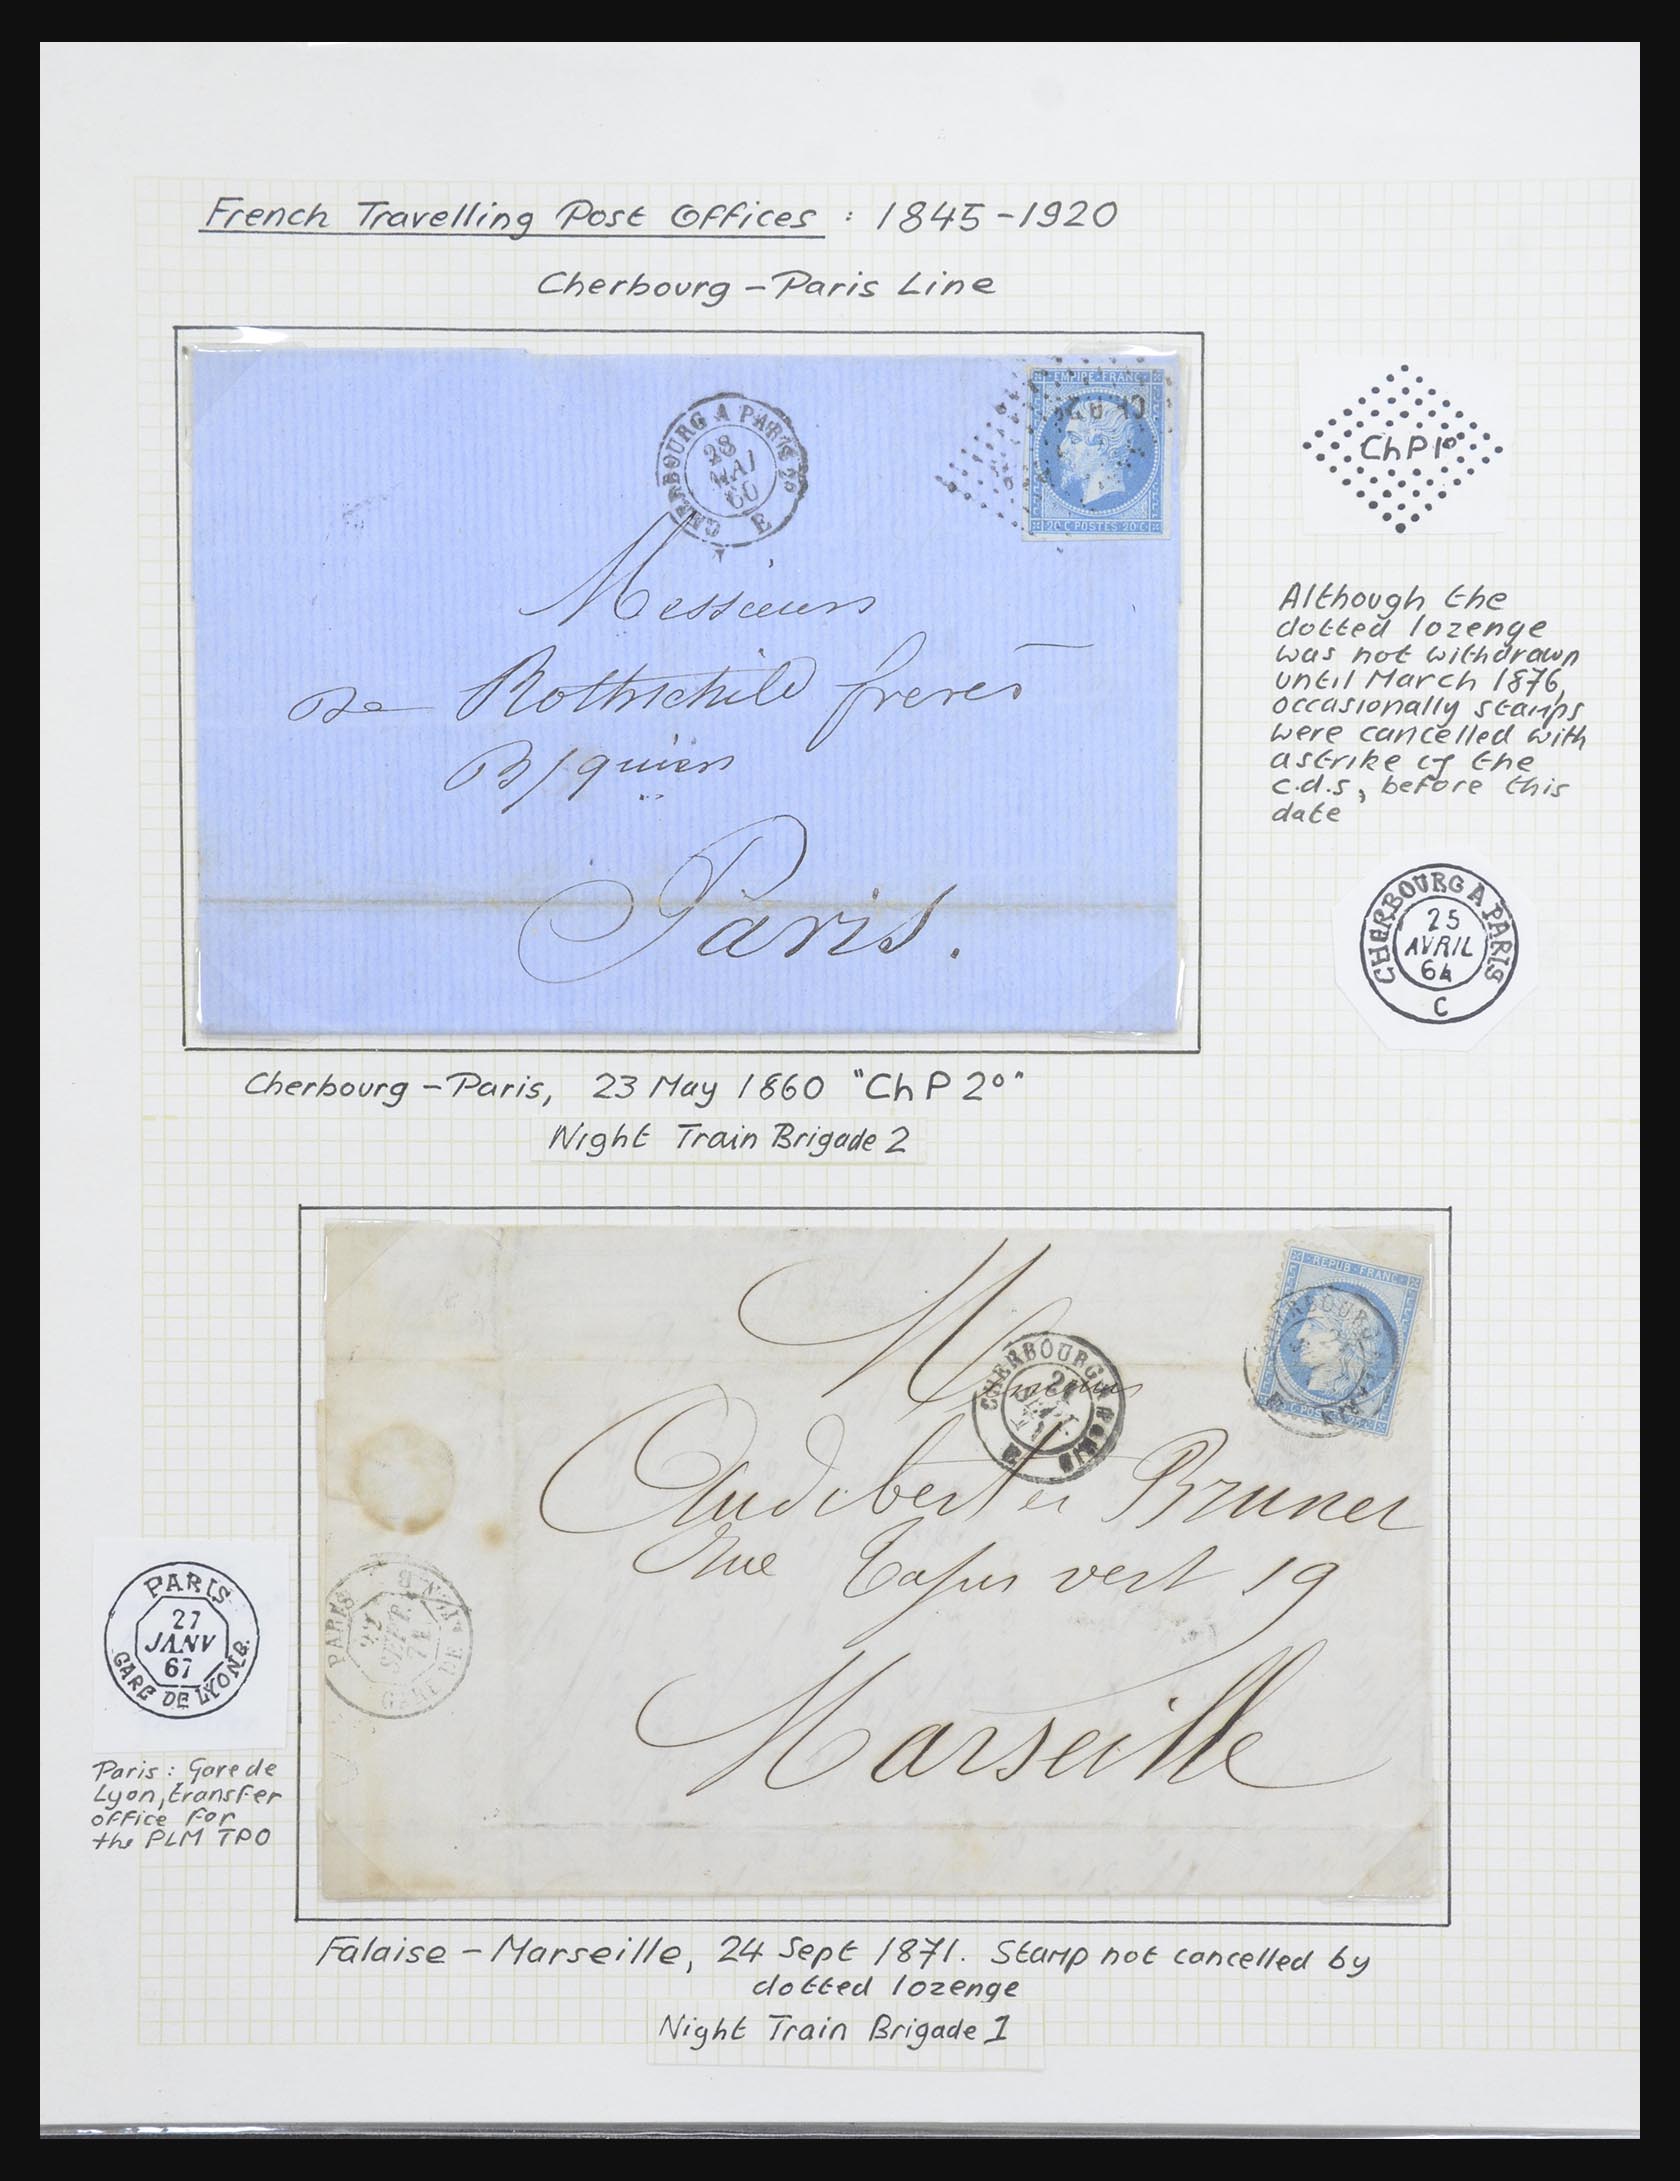 French Travelling Post Offices : 1845-1920
Cherbourg - Paris Line
CHERBOURG A PARIS 2º
28
MAI
60
E
EMPIRE FRANC
20 C POSTES 20 C
Messieurs
De Rothschild freres
Bquiers
Paris.
ChP1º
Although the
dotted lozenge
was not withdrawn
until March 1876,
occasionally stamps
were cancelled with
a strike of the
c.d.s, before this
date
CHERBOURG A PARIS
25
AVRIL
64
C
Cherbourg - Paris, 23 May 1860 "Ch P 2º"
Night Train Brigade 2
REPUB FRANC
Messieurs
CHERBOURG
Audibert et Brunet
Rue Tapis vert 19
Marseille
PARIS
22
SEPT.
71
GARE DE
PARIS
27
JANV
67
GARE DE LYON B.
Paris : Gare de
Lyon, transfer
office for
the PLM TPO
Falaise - Marseille, 24 Sept 1871. Stamp not cancelled by
dotted lozenge
Night Train Brigade 1